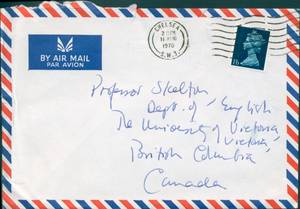 BY AIR MAIL
PAR AVION
CHELSEA
1970
S.W.3.
Professor Skelton
Dept. of English
The University of Victoria,
Victoria,
British Columbia,
Canada